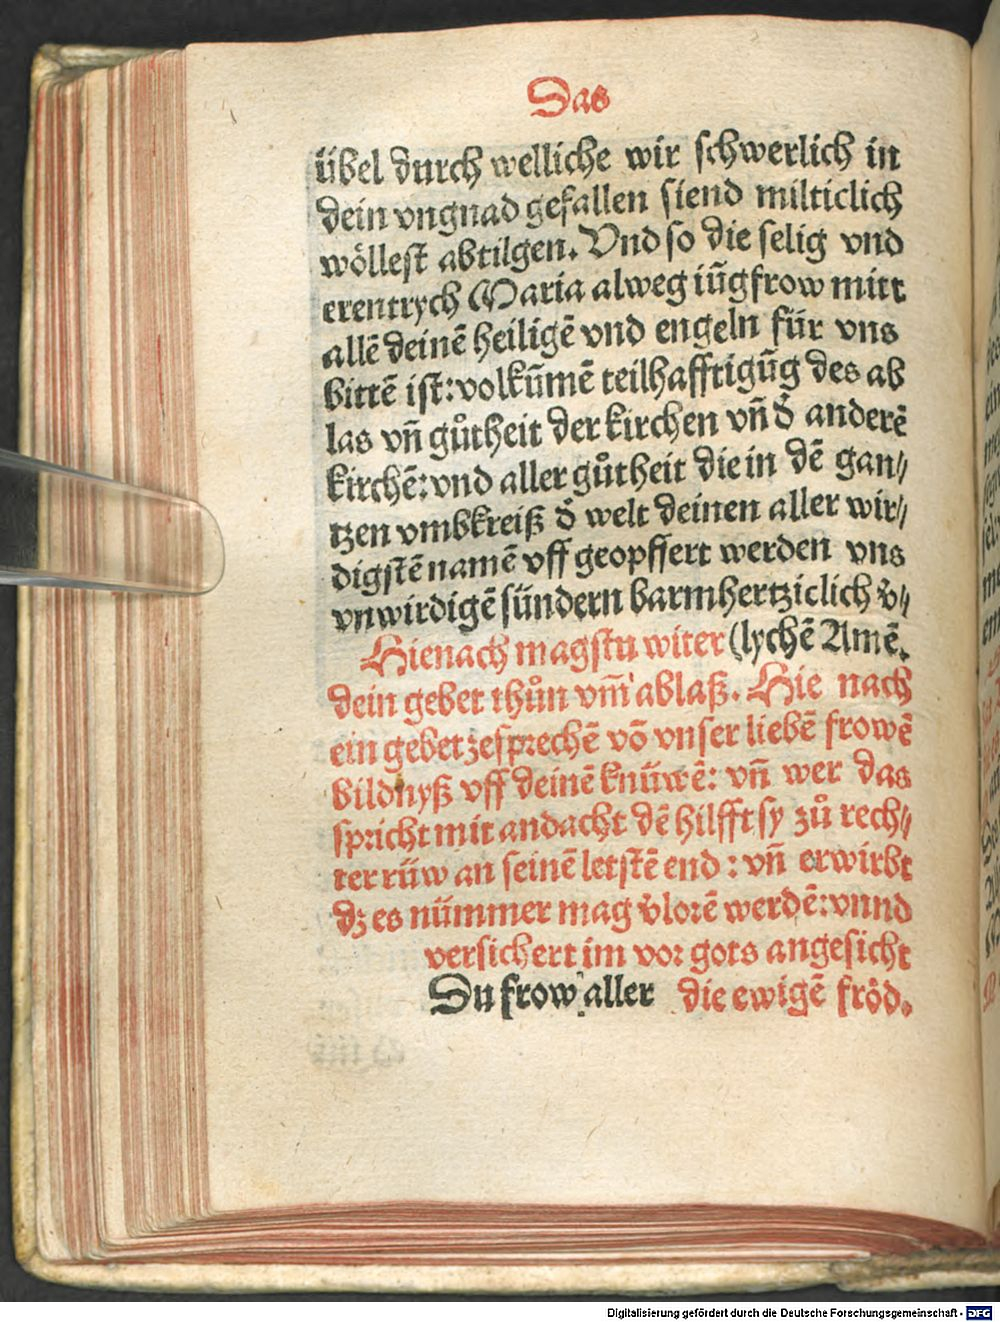 Das
übel durch welliche wir schwerlich in
dein vngnad gefallen siend milticlich
wöllest abtilgen. Vnd so die selig vnd
erentrych Maria alweg iūgfrow mitt
allē deinē heiligē vnd engeln für vns
bittē ist: volkūmē teilhafftigūg des ab
las vn̄ gůtheit der kirchen vn̄ d̕ anderē
kirchē: vnd aller gůtheit die in dē gan⸗
tzen vmbkreiß d̕ welt deinen aller wir⸗
digstē namē vff geopffert werden vns
vnwirdigē sündern barmhertziclich v̕⸗
Hienach magstu witer (lychē Amē.
dein gebet thůn vm̄ ablaß. Hie nach
ein gebet zesprechē vō vnser liebē frowē
bildnyß vff deinē knüwē: vn̄ wer das
spricht mit andacht dē hilfft sy zů rech⸗
ter rüw an seinē letstē end : vn̄ erwirbt
dz es nümmer mag v̕lorē werdē: vnnd
versichert im vor gots angesicht
Du frow aller die ewigē fröd.
Digitalisierung gefördert durch die Deutsche Forschungsgemeinschaft - DFG